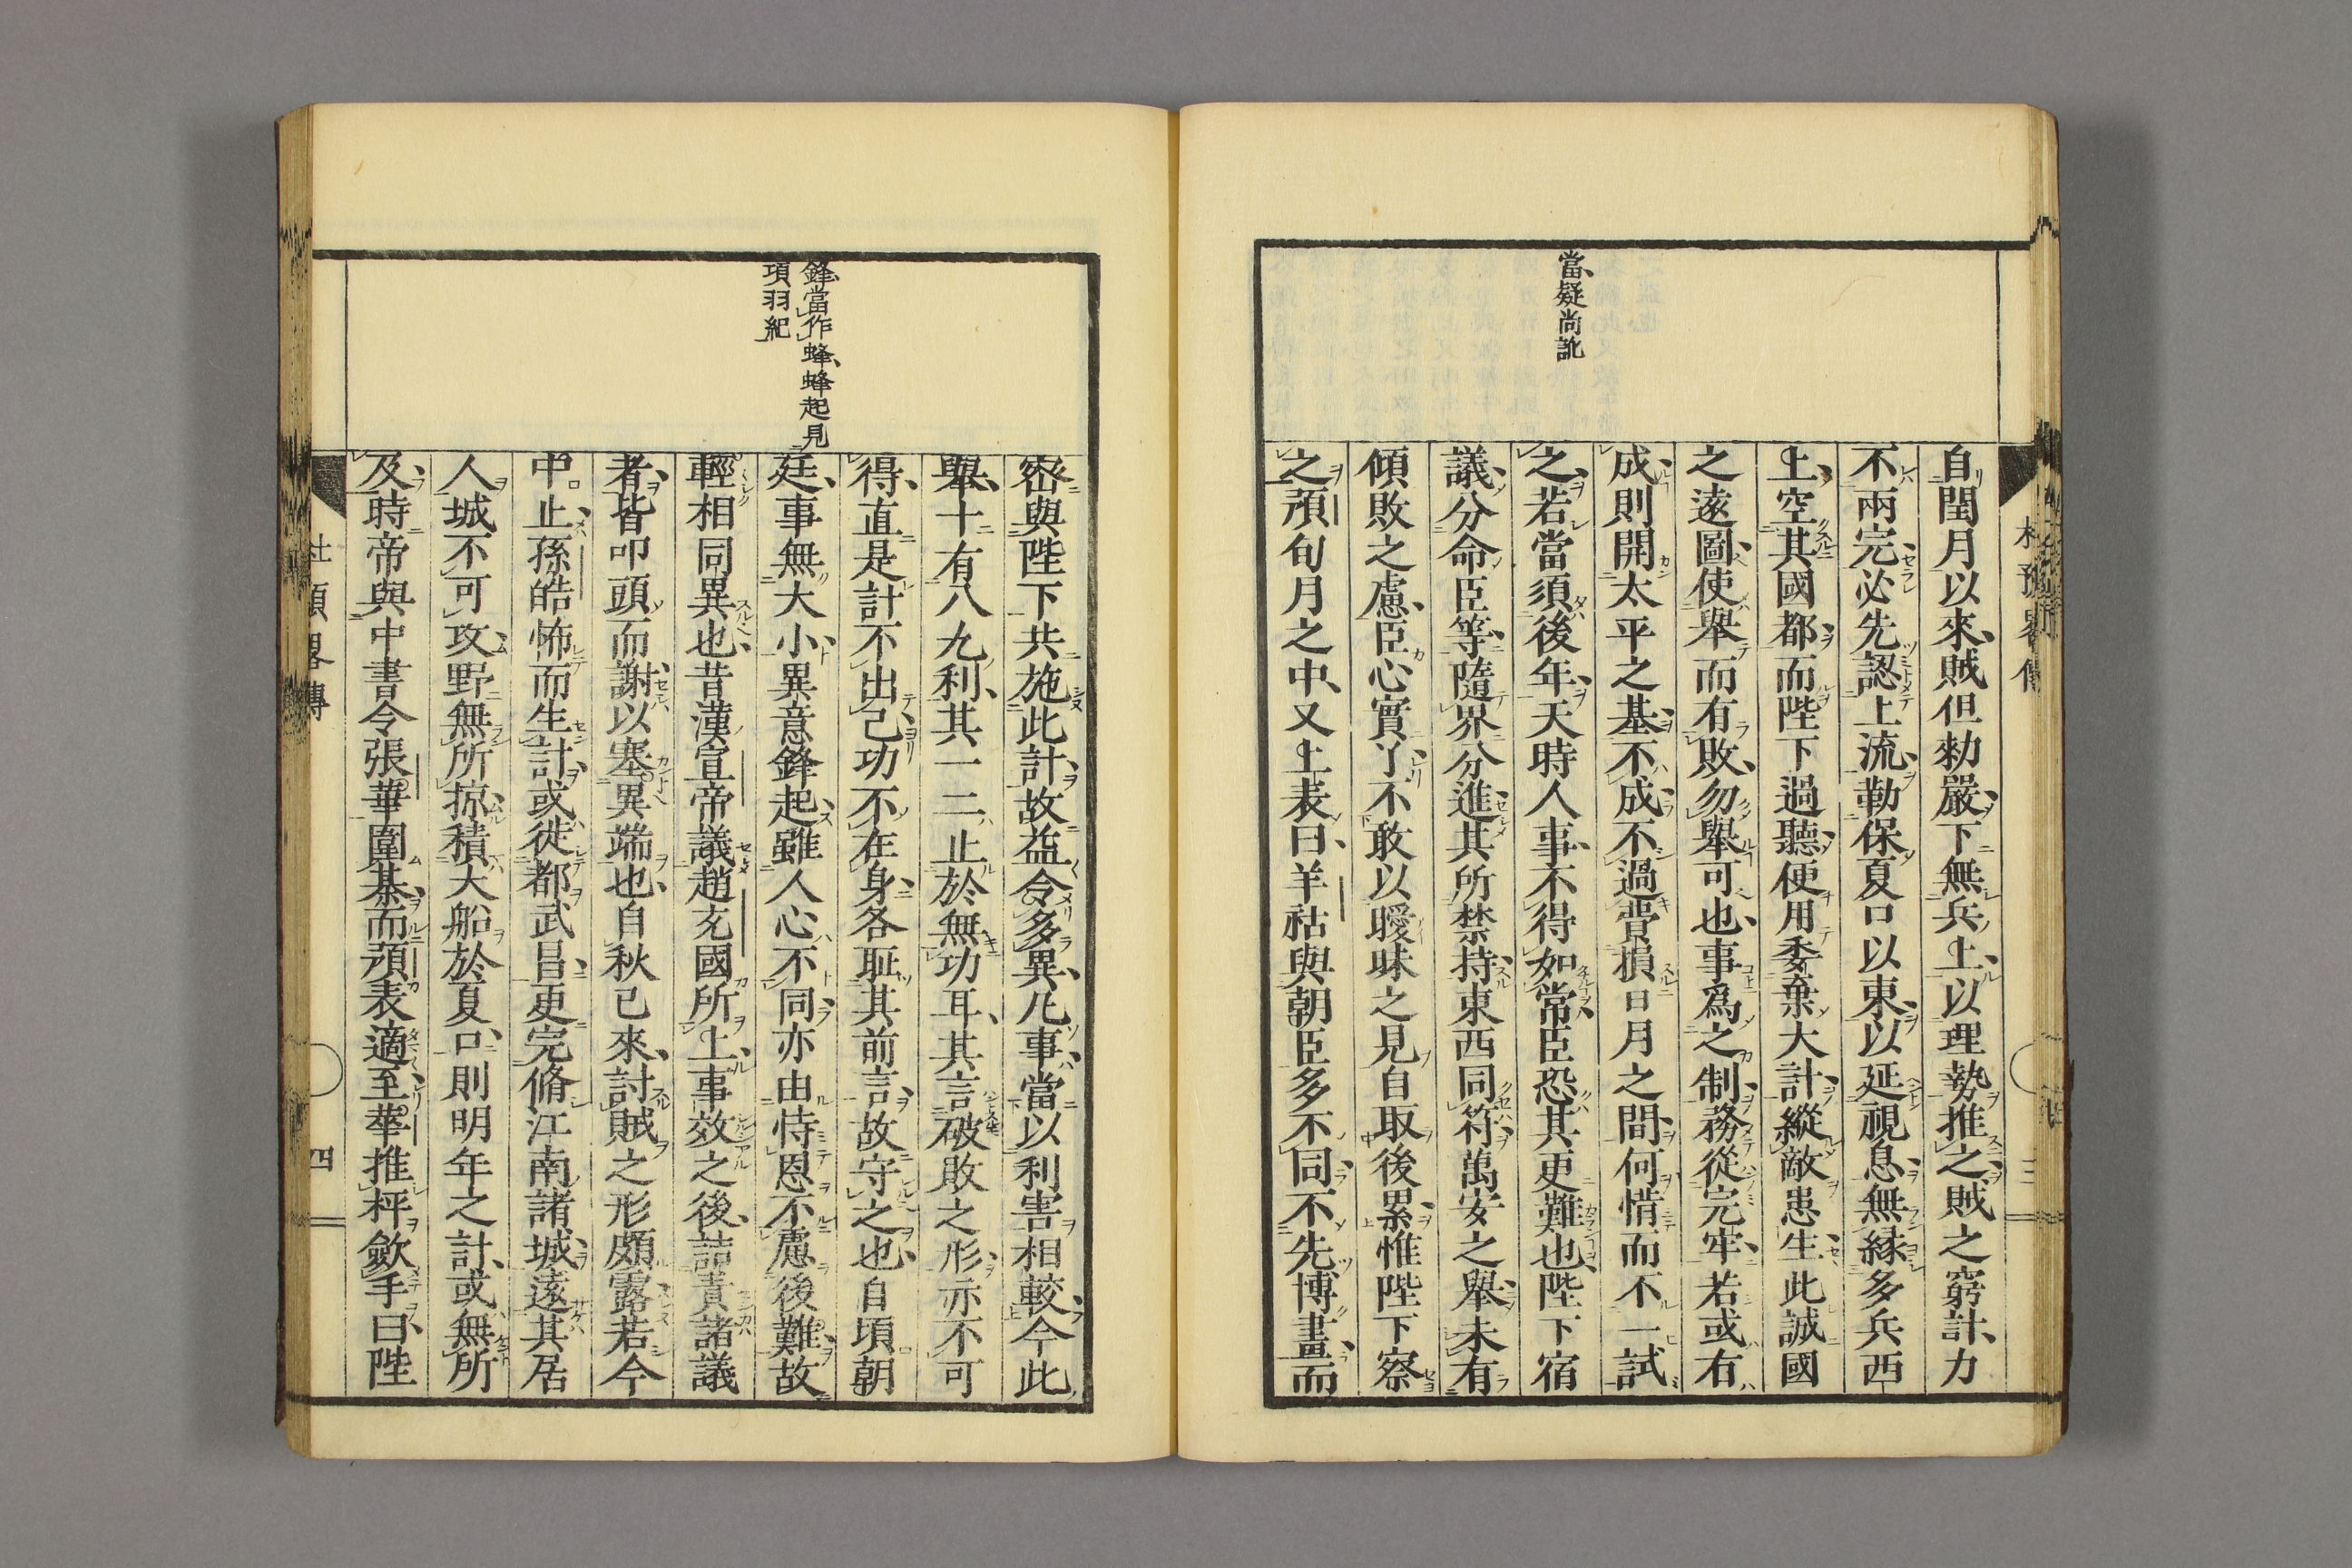 當疑尚訛
自閏月以來賊但勑嚴下無兵上以理勢推之賊之窮計力
不兩完必先認上流勒保夏口以東以延視息無緣多兵西
上空其國都而陛下過聽便用委棄大計縱敵患生此誠國
之遠圖使舉而有敗勿舉可也事爲之制務從完牢若或有
成則開太平之基不成不過費損日月之間何惜而不一試
之若當須後年天時人事不得如常臣恐其更難也陛下宿
議分命臣等隨界分進其所禁持東西同符萬安之舉未有
傾敗之慮臣心實了不敢以曖昧之見自取後累惟陛下察
之預旬月之中又上表曰羊祜與朝臣多不同不先博畫而
杜預畧傳
三
鋒當作蜂蜂起見
項羽紀
密與陛下共施此計故益令多異凡事當以利害相較今此
舉十有八九利其一二止於無功耳其言破敗之形亦不可
得直是計不出己功不在身各耻其前言故守之也自頃朝
廷事無大小異意鋒起雖人心不同亦由恃恩不慮後難故
輕相同異也昔漢宣帝議趙充國所上事效之後詰責諸議
者皆叩頭而謝以塞異端也自秋已來討賊之形頗露若今
中止孫皓怖而生計或徙都武昌更完脩江南諸城遠其居
人城不可攻野無所掠積大船於夏口則明年之計或無所
及時帝與中書令張華圍棊而預表適至華推枰斂手曰陛
杜預畧傳
四